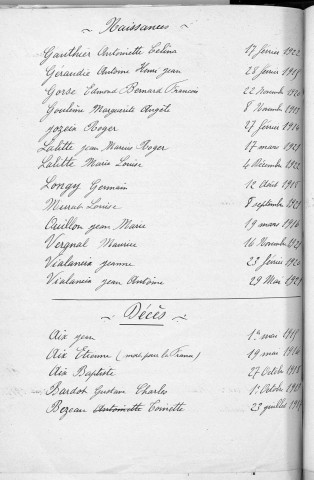 ~ Naissances ~
Gauthier Antoinette Célina 17 février 1922
Géraudie Antoine Henri jean 28 février
Gorse Edmond Bernard François 22 Novemb
Goulène Marguerite Angèle 8 Novemb
jozoin Roger 27 février 1914
Lalitte jean Marius Roger 17 mars
Lalitte Marie Louise 4 Décembre 1922
Longy Germain 12 Août
Murat Louise 8 septemb
Ouillon jean Marie 19 mars
Vergnal Maurice 16 Novemb
Vialaneix jeanne 23 février
Vialaneix jean Antoine 29 Mai 1921
~ Décès ~
Aix jean 1er mai
Aix Etienne (mort pour la France) 19 mai
Aix Baptiste 27 Octobr
Bardot Gustave Charles 1er Octobr
Bezeau Antoinette Toinette 23 juillet